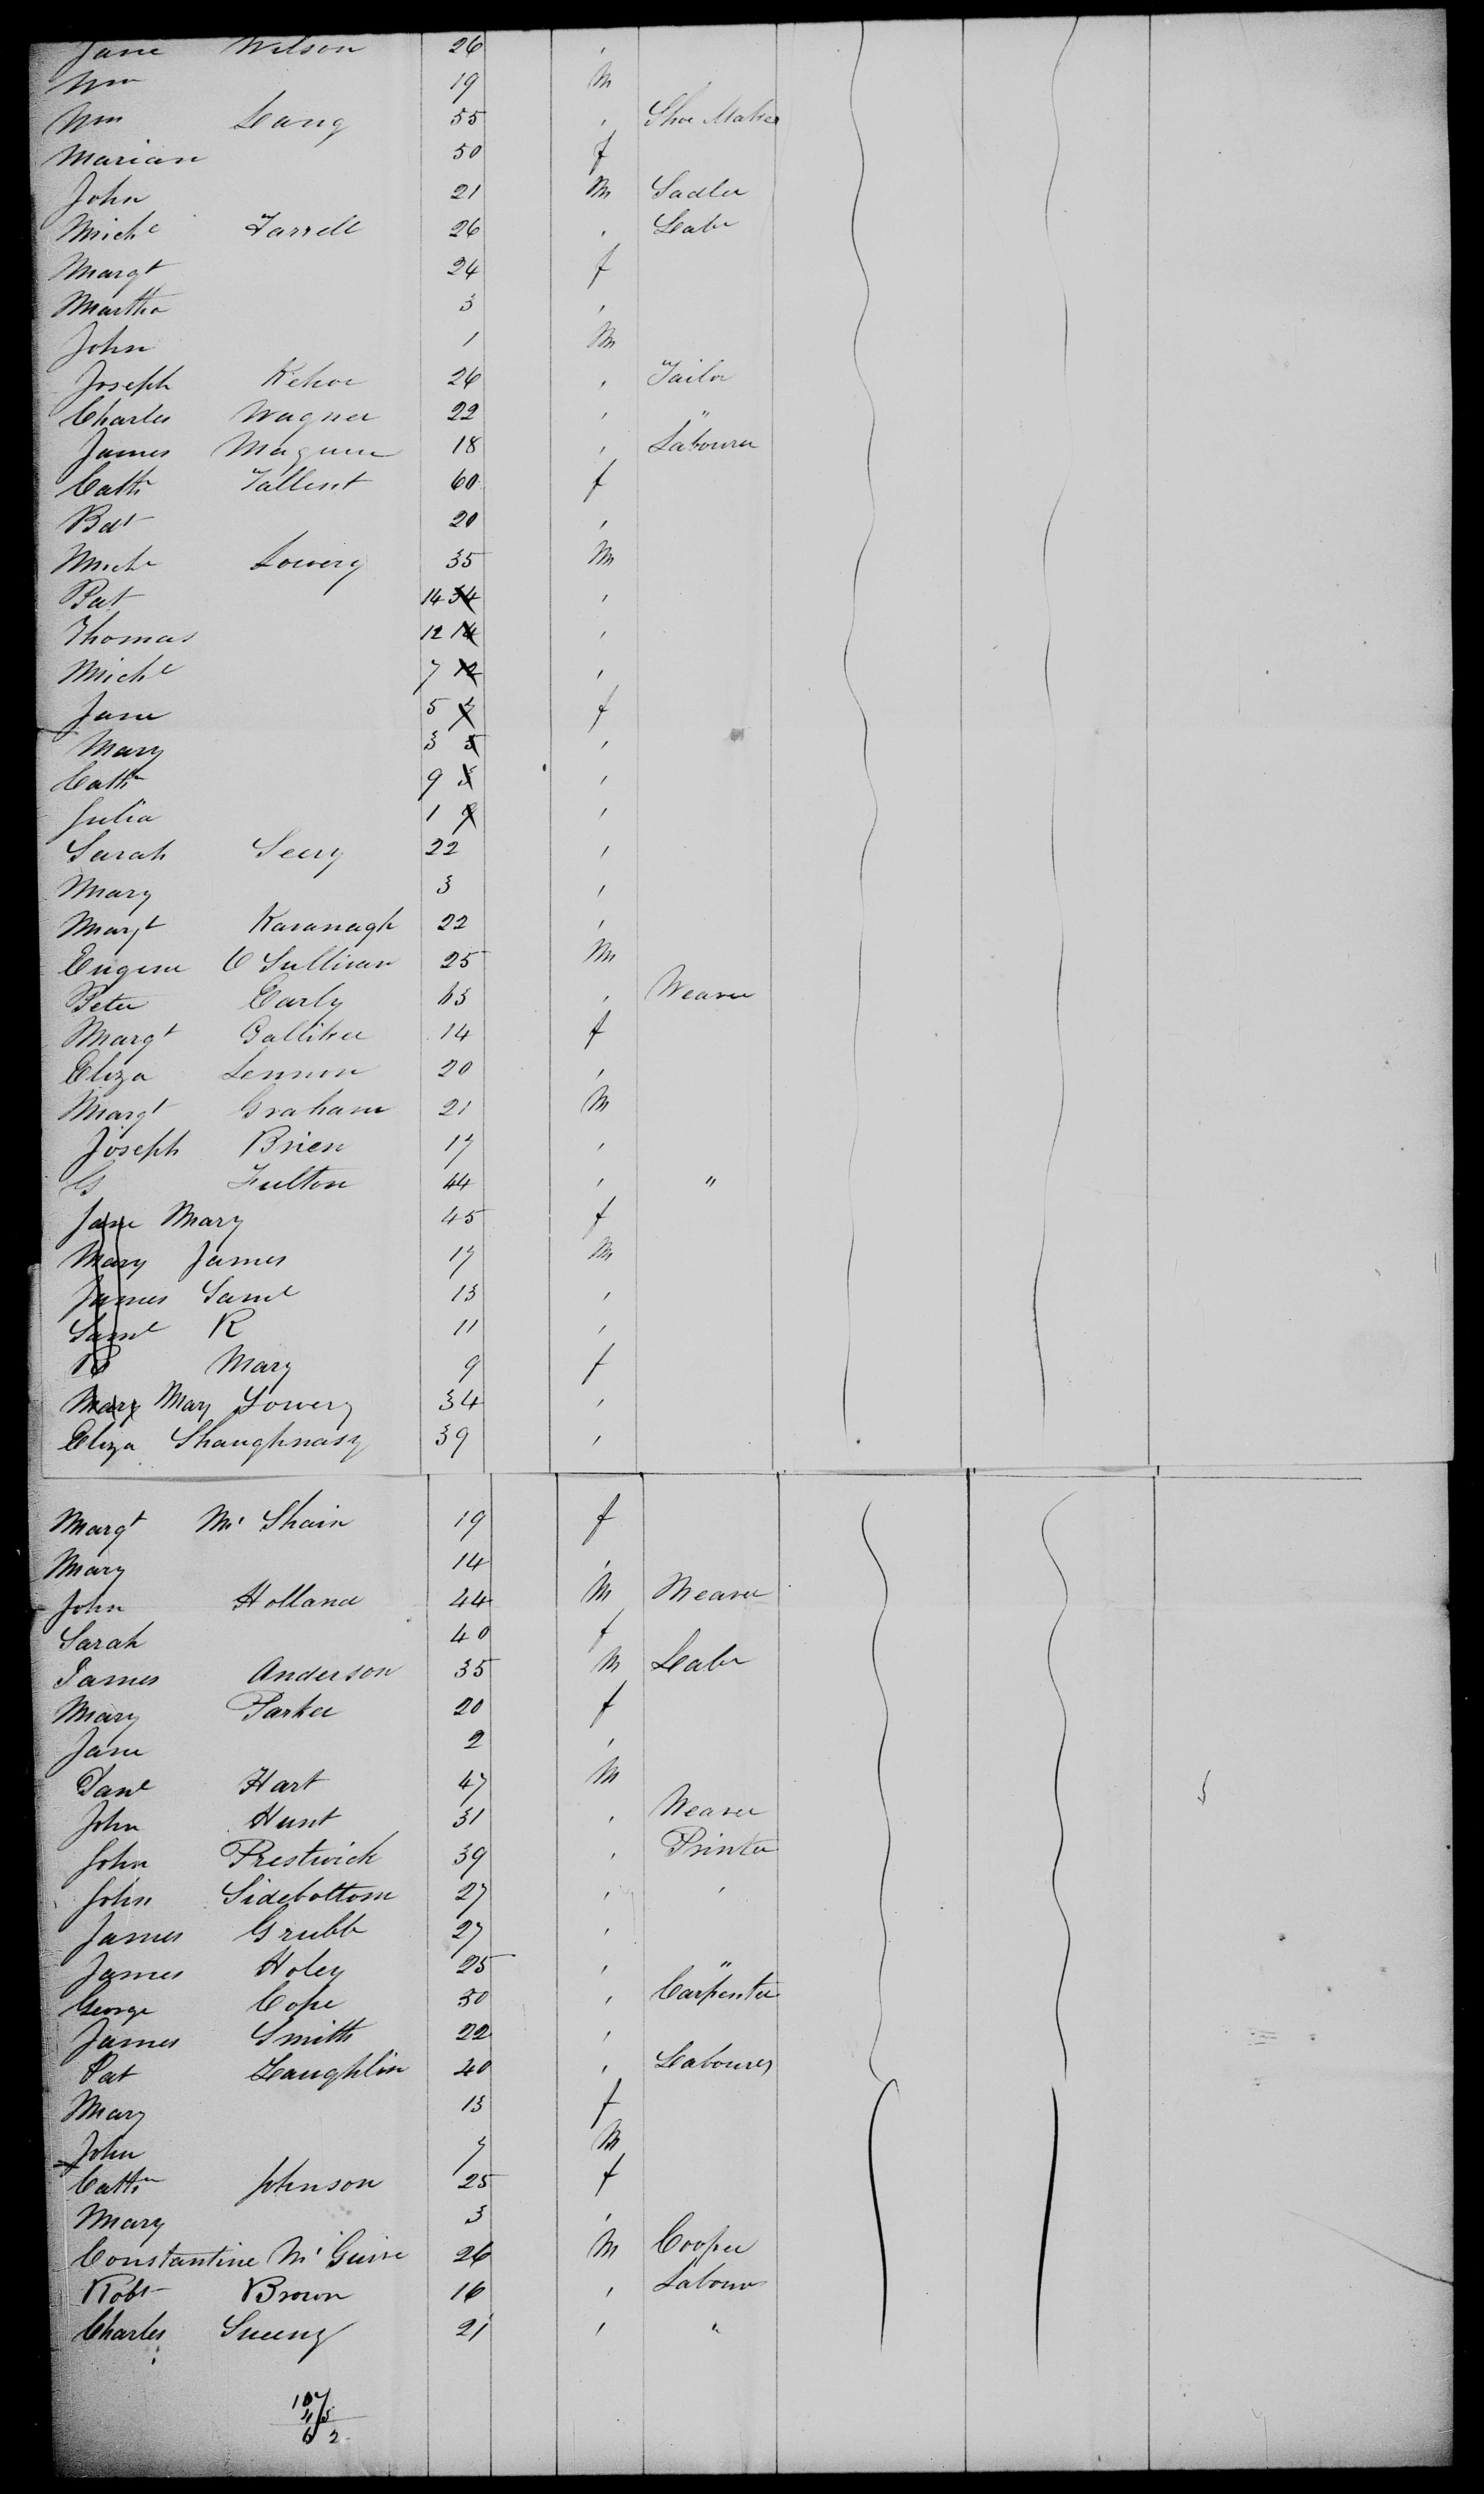 Jane Wilson 26 '
Wm 19 M
Wm Lang 55 ' Shoe Maker
Marian 50 f
John 21 M Sadler
Michl Farrell 26 ' Labr
Margt 24 f
Martha 3 '
John 1 M
Joseph Kehoe 26 ' Tailor
Charles Wagner 22 ' "
James Maguire 18 ' Labourer
Cathn Tallent 60 f
Bdt 20 '
Michl Lowery 35 M
Pat 14 34 '
Thomas 12 14 '
Michl 7 12 '
Jane 5 7 f
Mary 3 5 '
Cathn 9 3 '
Julia 1 9 '
Sarah Seery 22 '
Mary 3 '
Margt Kavanagh 22 '
Eugene O Sullivan 25 M
Peter Early 63 ' Weaver
Margt Galliker 14 f
Eliza Lennon 20 '
Margt Graham 21 M
Joseph Brien 17 '
G Fulton 44 ' "
Jane Mary 45 f
Mary James 17 M
James Saml 13 '
Saml R 11 '
R Mary 9 f
Mary Mary Lowery 34 '
Eliza Shaughnasy 39 '
Margt Mc Shain 19 f
Mary 14 '
John Holland 44 M Weaver
Sarah 40 f
James Anderson 35 M Labr
Mary Parker 20 f
Jane 2 '
Danl Hart 47 M
John Hunt 31 ' Weaver
John Prestwick 39 ' Printer
John Sidebottom 27 ' '
James Grubb 27 '
James Holey 25 ' "
George Cope 30 ' Carpenter
James Smith 22 '
Pat Laughlin 40 ' Labourer
Mary 13 f
John 7 M
Cathn Johnson 25 f
Mary 3 '
Constantine Mc Guire 26 M Cooper
Robt Brown 16 ' Labour
Charles Sweeny 21 ' "
107
45
62